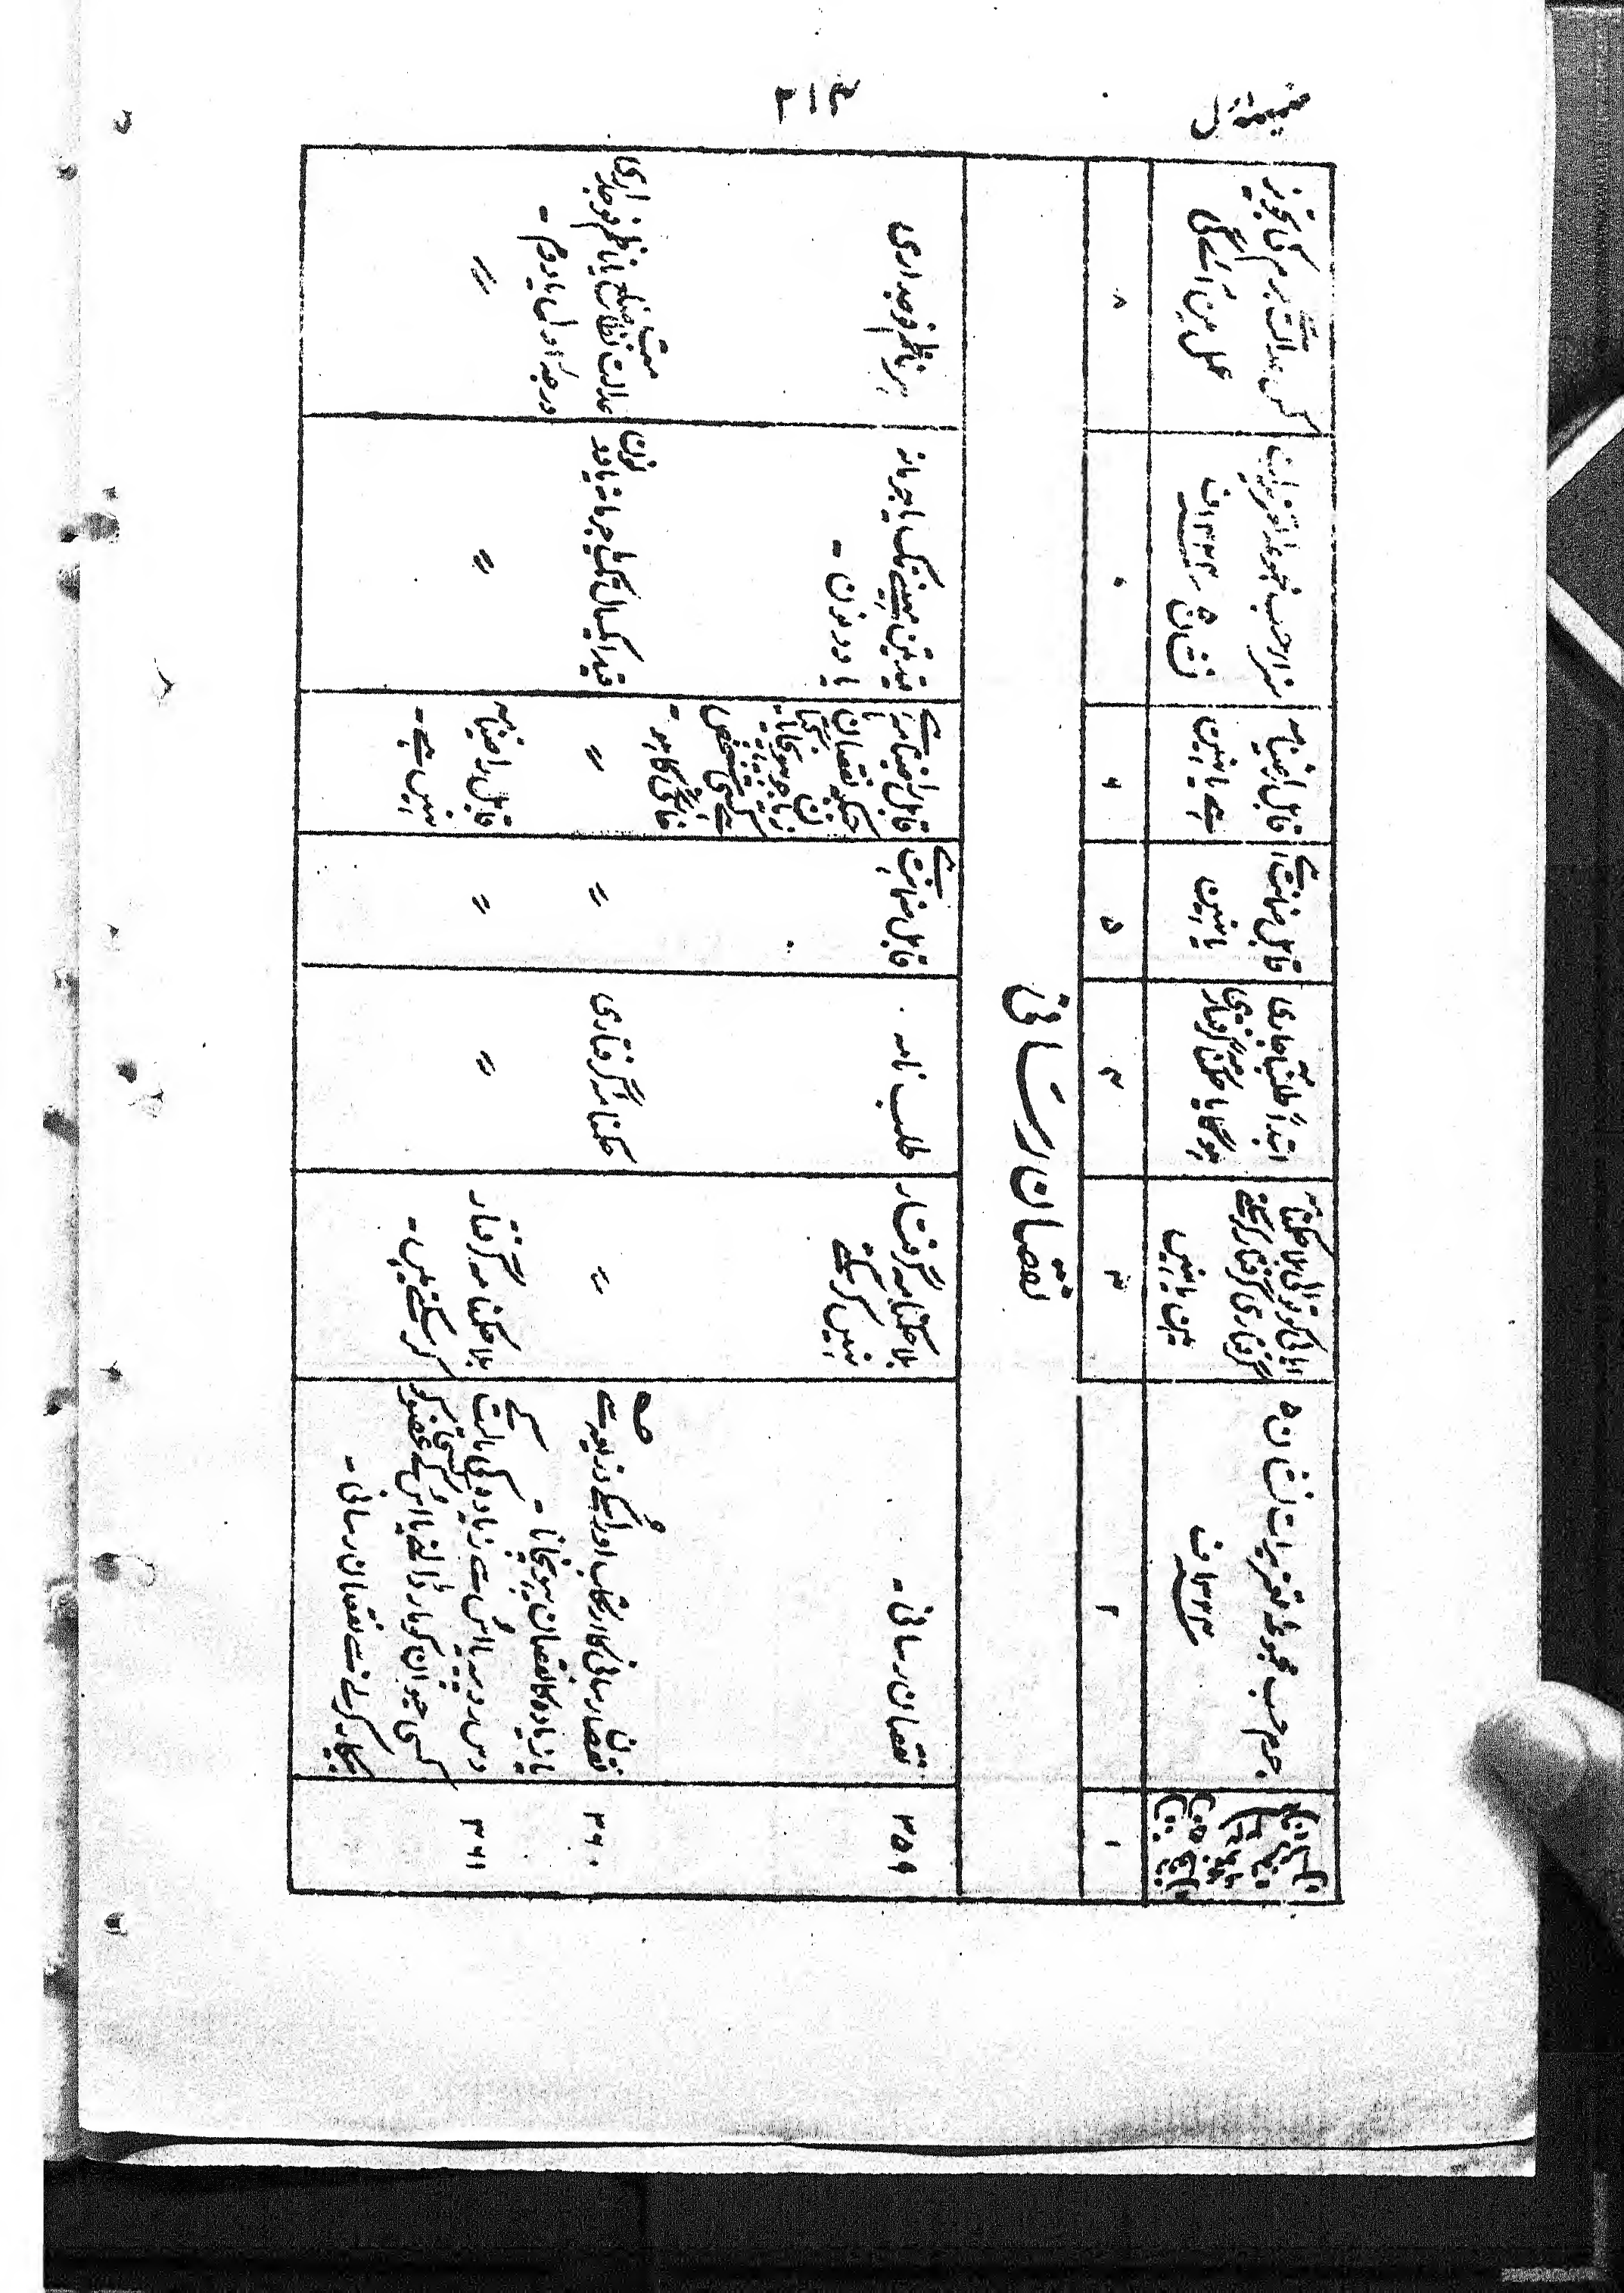 ضمیمہ
۳۱۴
جرم حسب مجموعہ تعزیرات نشان ۵
۱۳۲۴ف
اہالی کوتوالی بلا حکمنامہ
گرفتاری گرفتار کرسکتے
ہیں یا نہیں
ابتداً طلبنامہ جاری
ہوگا یا حکمنامہ گرفتاری
قابل ضمانت ہے
یا نہیں
قابل راضینامہ
ہے یا نہیں
سزا حسب مجموعہ تعزیرات
نشان ۵ ۱۳۲۴ف
کس عدالت سے جرم کی تجویز
عمل میں آئے گی
۱
۲
۳
۴
۵
۶
۷
۸
نقصان رسانی
۳۵۹
نقصان رسانی۔
بلا حکمنامہ گرفتار
نہیں کرسکتے
طلب نامہ
قابل ضمانت ہے
قابل راضینامہ ہے
جبکہ نقصان
کسی شخص
خانگی کا ہو۔
قید تین مہینے تک یا جرمانہ
یا دونوں۔
ہر ناظم فوجداری
۳۶۰
نقصان رسانی کا ارتکاب اور اسکے ذریعہ سے
یا زیادہ کا نقصان پہونچانا۔
〃
حکمنامہ گرفتاری
〃
〃
قید ایک سال تک یا جرمانہ یا دونوں
عدالت نظامت ضلع یا ناظم فوجداری
درجہ اول یا دوم۔
۳۶۱
دس روپیہ یا اُس سے زیادہ کی مالیت کے
کسی حیوان کو مار ڈالنے یا اس کے کسی عضو کو
بیکار کرنے سے نقصان رسانی۔
بلا حکمنامہ گرفتار
کرسکتے ہیں۔
〃
〃
قابل راضینامہ
نہیں ہے۔
〃
〃